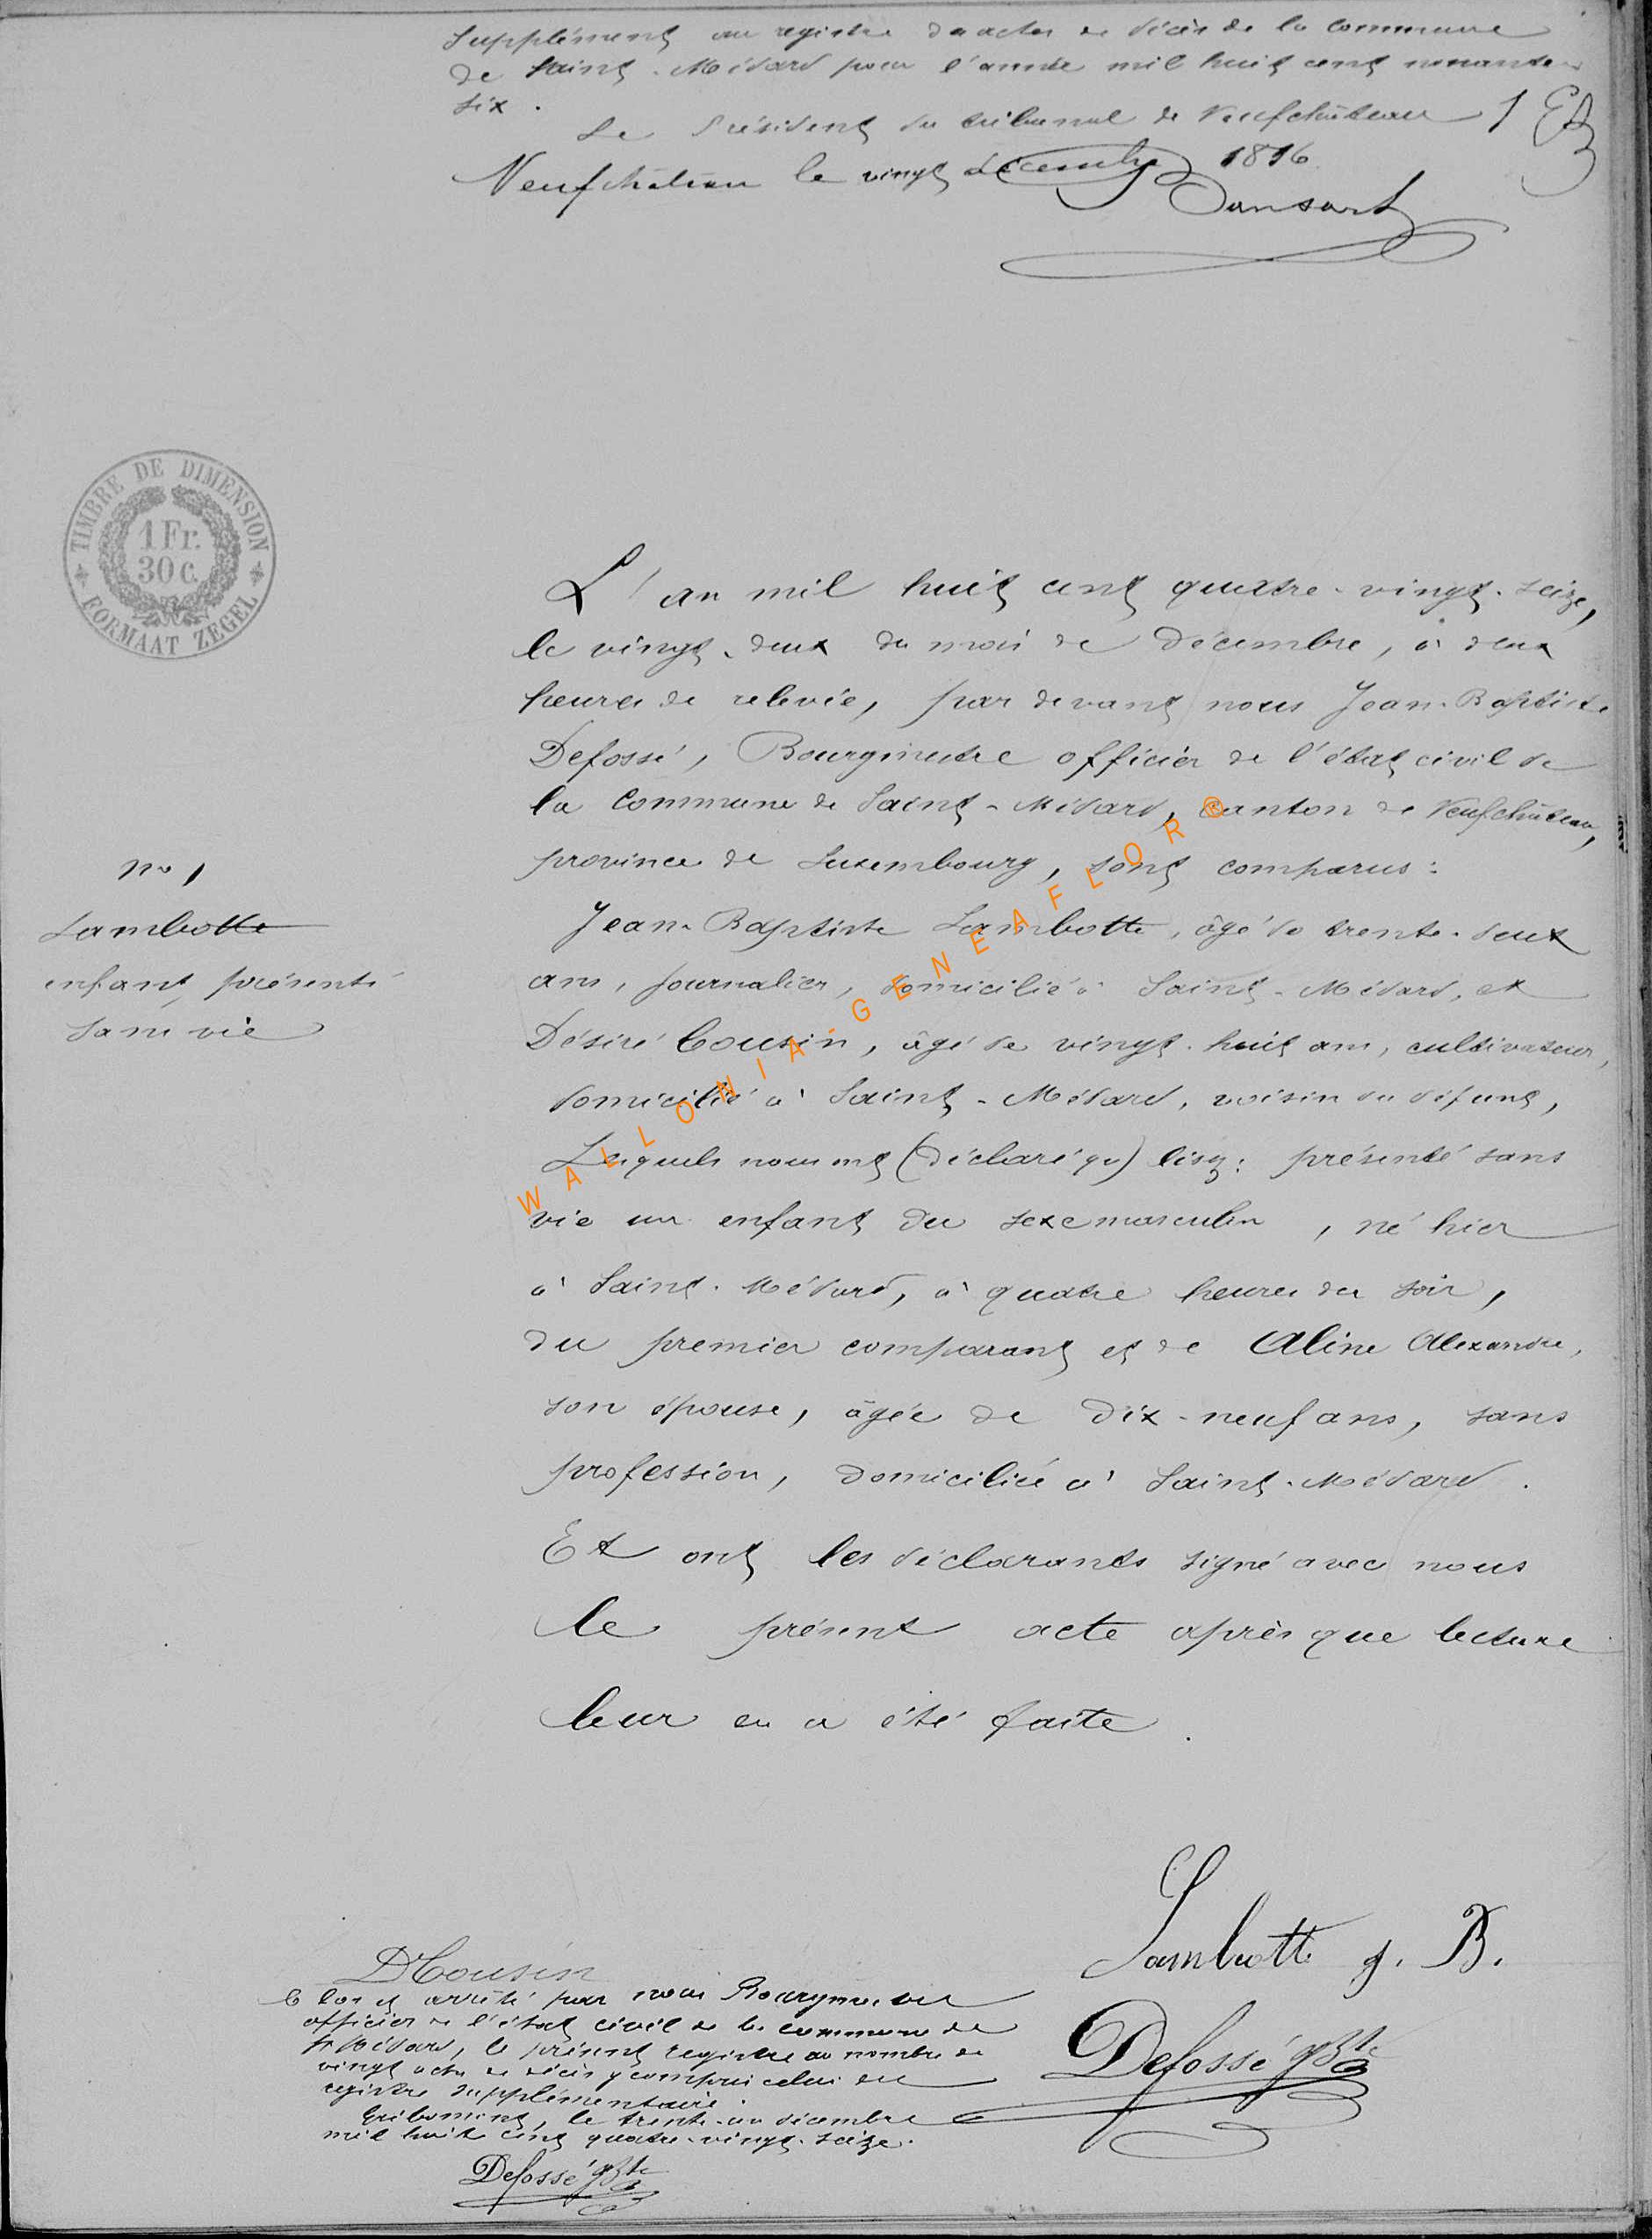 Supplément au registre des actes de décès de la commune
de Saint-Médard pour l'année mil huit cent nonante
six.
Le Président du tribunal de Neufchâteau
1
Neufchâteau le vingt décembre 1896
Dansart
TIMBRE DE DIMENSION
1 Fr.
30 c.
FORMAAT ZEGEL
L'an mil huit cent quatre-vingt-seize,
le vingt-deux du mois de Décembre, à deux
heures de relevée, par devant nous Jean-Baptiste
Defossé, Bourgmestre officier de l'état civil de
la Commune de Saint-Médard, canton de Neufchâteau,
province de Luxembourg, sont comparus :
No 1
Lambotte
enfant présenté
sans vie
Jean-Baptiste Lambotte, âgé de trente-deux
ans, journalier, domicilié à Saint-Médard, et
Désiré Cousin, âgé de vingt-huit ans, cultivateur,
domicilié à Saint-Médard, voisin du défunt,
Lesquels nous ont (déclaré qu) lisez : présenté sans
vie un enfant du sexe masculin, né hier
à Saint-Médard, à quatre heures du soir,
du premier comparant et de Aline Alexandre,
son épouse, âgée de dix-neuf ans, sans
profession, domiciliée à Saint-Médard.
Et ont les déclarants signé avec nous
le présent acte après que lecture
leur en a été faite.
WALLONIA-GENEAFLOR©
Lambotte J. B.
D Cousin
Defossé JBte
Clos et arrêté par nous Bourgmestre
officier de l'état civil de la commune de
St Médard, le présent registre au nombre de
vingt actes de décès y compris celui du
registre supplémentaire.
Gribomont, le trente-un décembre
mil huit cent quatre-vingt-seize.
Defossé JBte